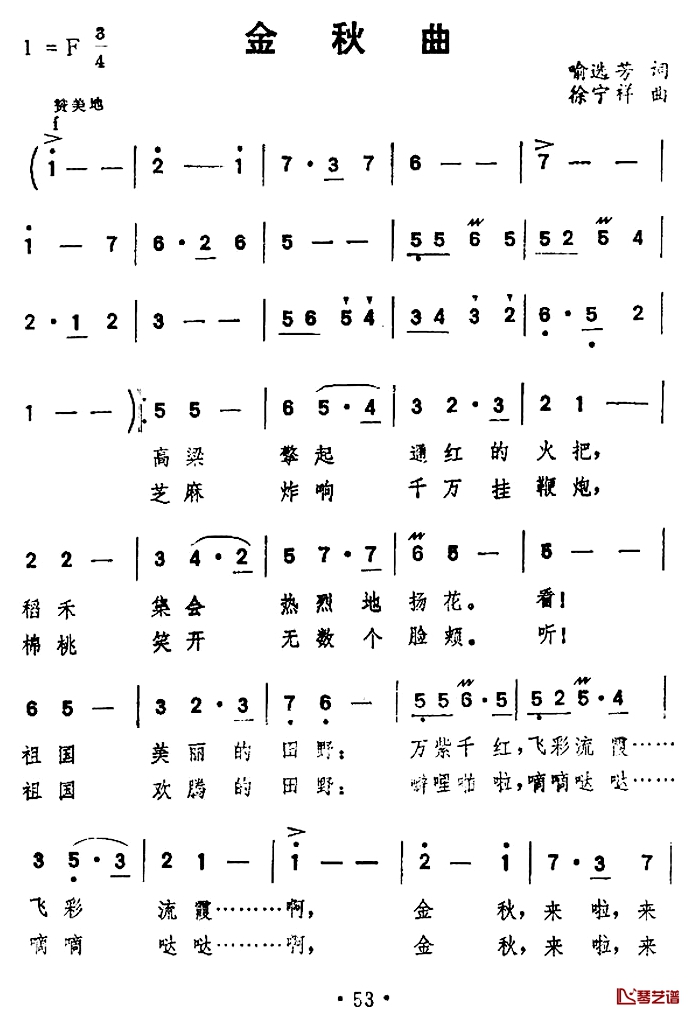 金秋曲
1 = F 3/4
喻选芳 词
徐宁祥 曲
赞美地
f
( 1 — — | 2 — 1 | 7 · 3 7 | 6 — — | 7 — — |
1 — 7 | 6 · 2 6 | 5 — — | 5 5 6 5 | 5 2 5 4 |
2 · 1 2 | 3 — — | 5 6 5 4 | 3 4 3 2 | 6 · 5 2 |
1 — — ) 5 5 — | 6 5 · 4 | 3 2 · 3 | 2 1 — |
高粱 擎起 通红的火把,
芝麻 炸响 千万挂鞭炮,
2 2 — | 3 4 · 2 | 5 7 · 7 | 6 5 — | 5 — — |
稻禾 集会 热烈地扬花。看!
棉桃 笑开 无数个脸颊。听!
6 5 — | 3 2 · 3 | 7 6 — | 5 5 6 · 5 | 5 2 5 · 4 |
祖国 美丽的田野: 万紫千红,飞彩流霞……
祖国 欢腾的田野: 噼哩啪啦,嘀嘀哒哒……
3 5 · 3 | 2 1 — | 1 — — | 2 — 1 | 7 · 3 7 |
飞彩 流霞………啊, 金 秋,来啦,来
嘀嘀 哒哒………啊, 金 秋,来啦,来
· 53 ·
琴艺谱